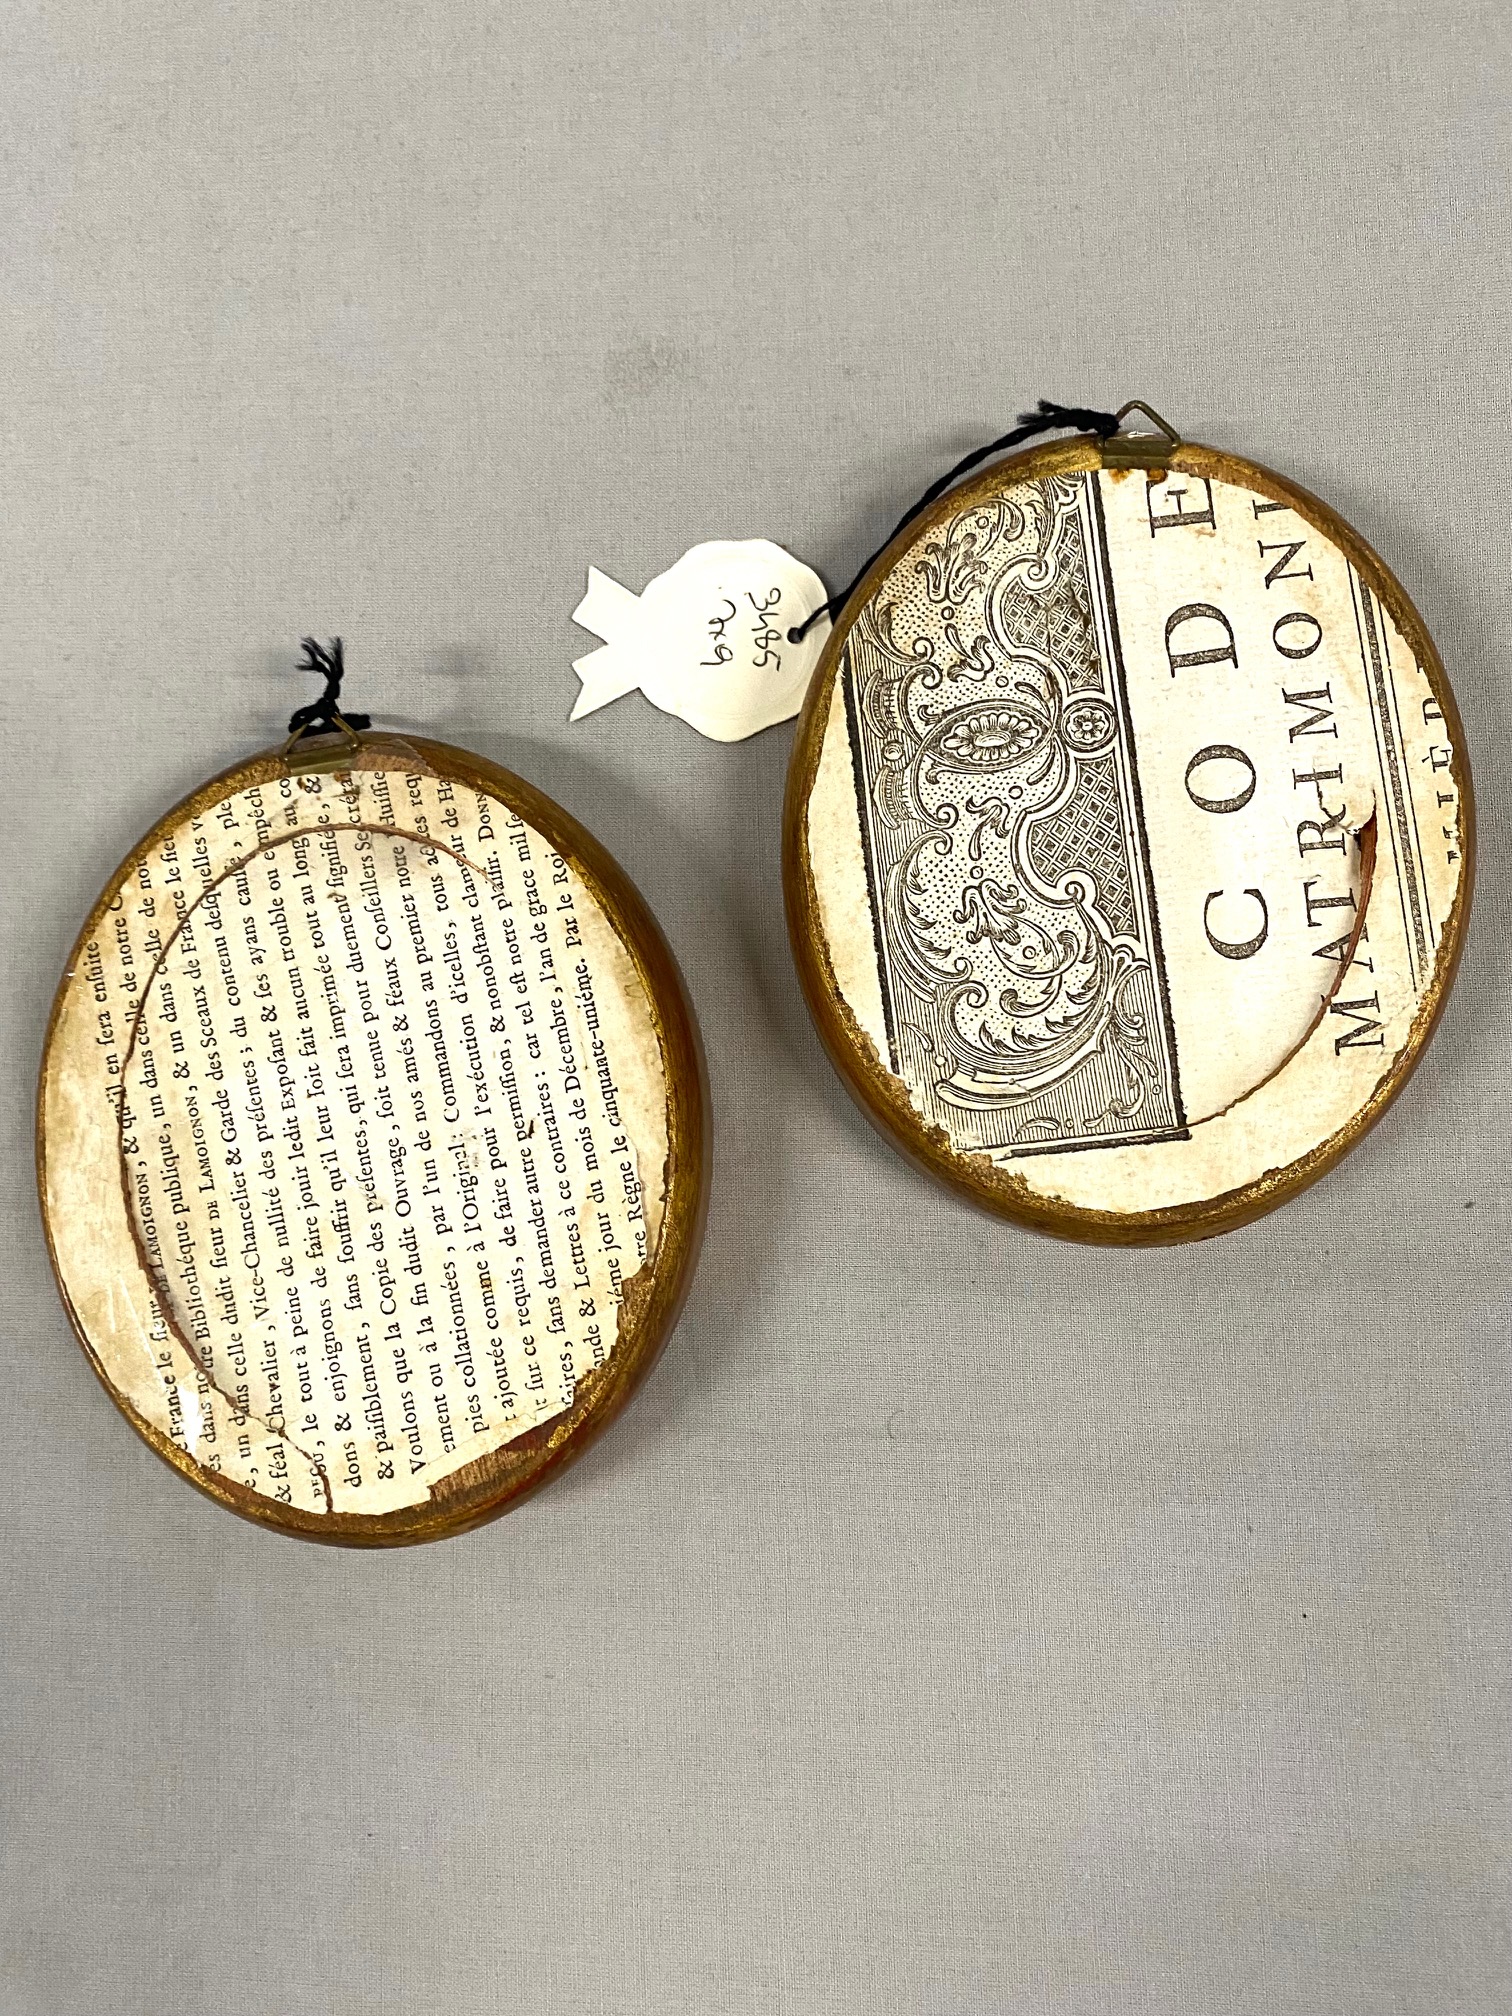 en ſera enſuite
France le ſieur DE LAMOIGNON, & qu'il
dans notre Bibliothéque publique, un dans celle de notre
, un dans celle dudit ſieur DE LAMOIGNON, & un dans celle de notre
& féal Chevalier, Vice-Chancelier & Garde des Sceaux de France le ſieur
, le tout à peine de nullité des préſentes; du contenu deſquelles
dons & enjoignons de faire jouir ledit Expoſant & ſes ayans cauſe, ple
& paiſiblement, ſans ſouffrir qu'il leur ſoit fait aucun trouble ou empêch
Voulons que la Copie des préſentes, qui ſera imprimée tout au long au co
ement ou à la fin dudit Ouvrage, ſoit tenue pour duement ſignifiée, &
pies collationnées, par l'un de nos amés & féaux Conſeillers Secrétai
ajoutée comme à l'Original: Commandons au premier notre Huiſſie
ſur ce requis, de faire pour l'exécution d'icelles, tous actes req
ſaires, ſans demander autre permiſſion, & nonobſtant clameur de Ha
ande & Lettres à ce contraires: car tel eſt notre plaiſir. DONN
iéme jour du mois de Décembre, l'an de grace mil ſe
tre Règne le cinquante-uniéme. Par le Roi
3485
CODE
MATRIMONI